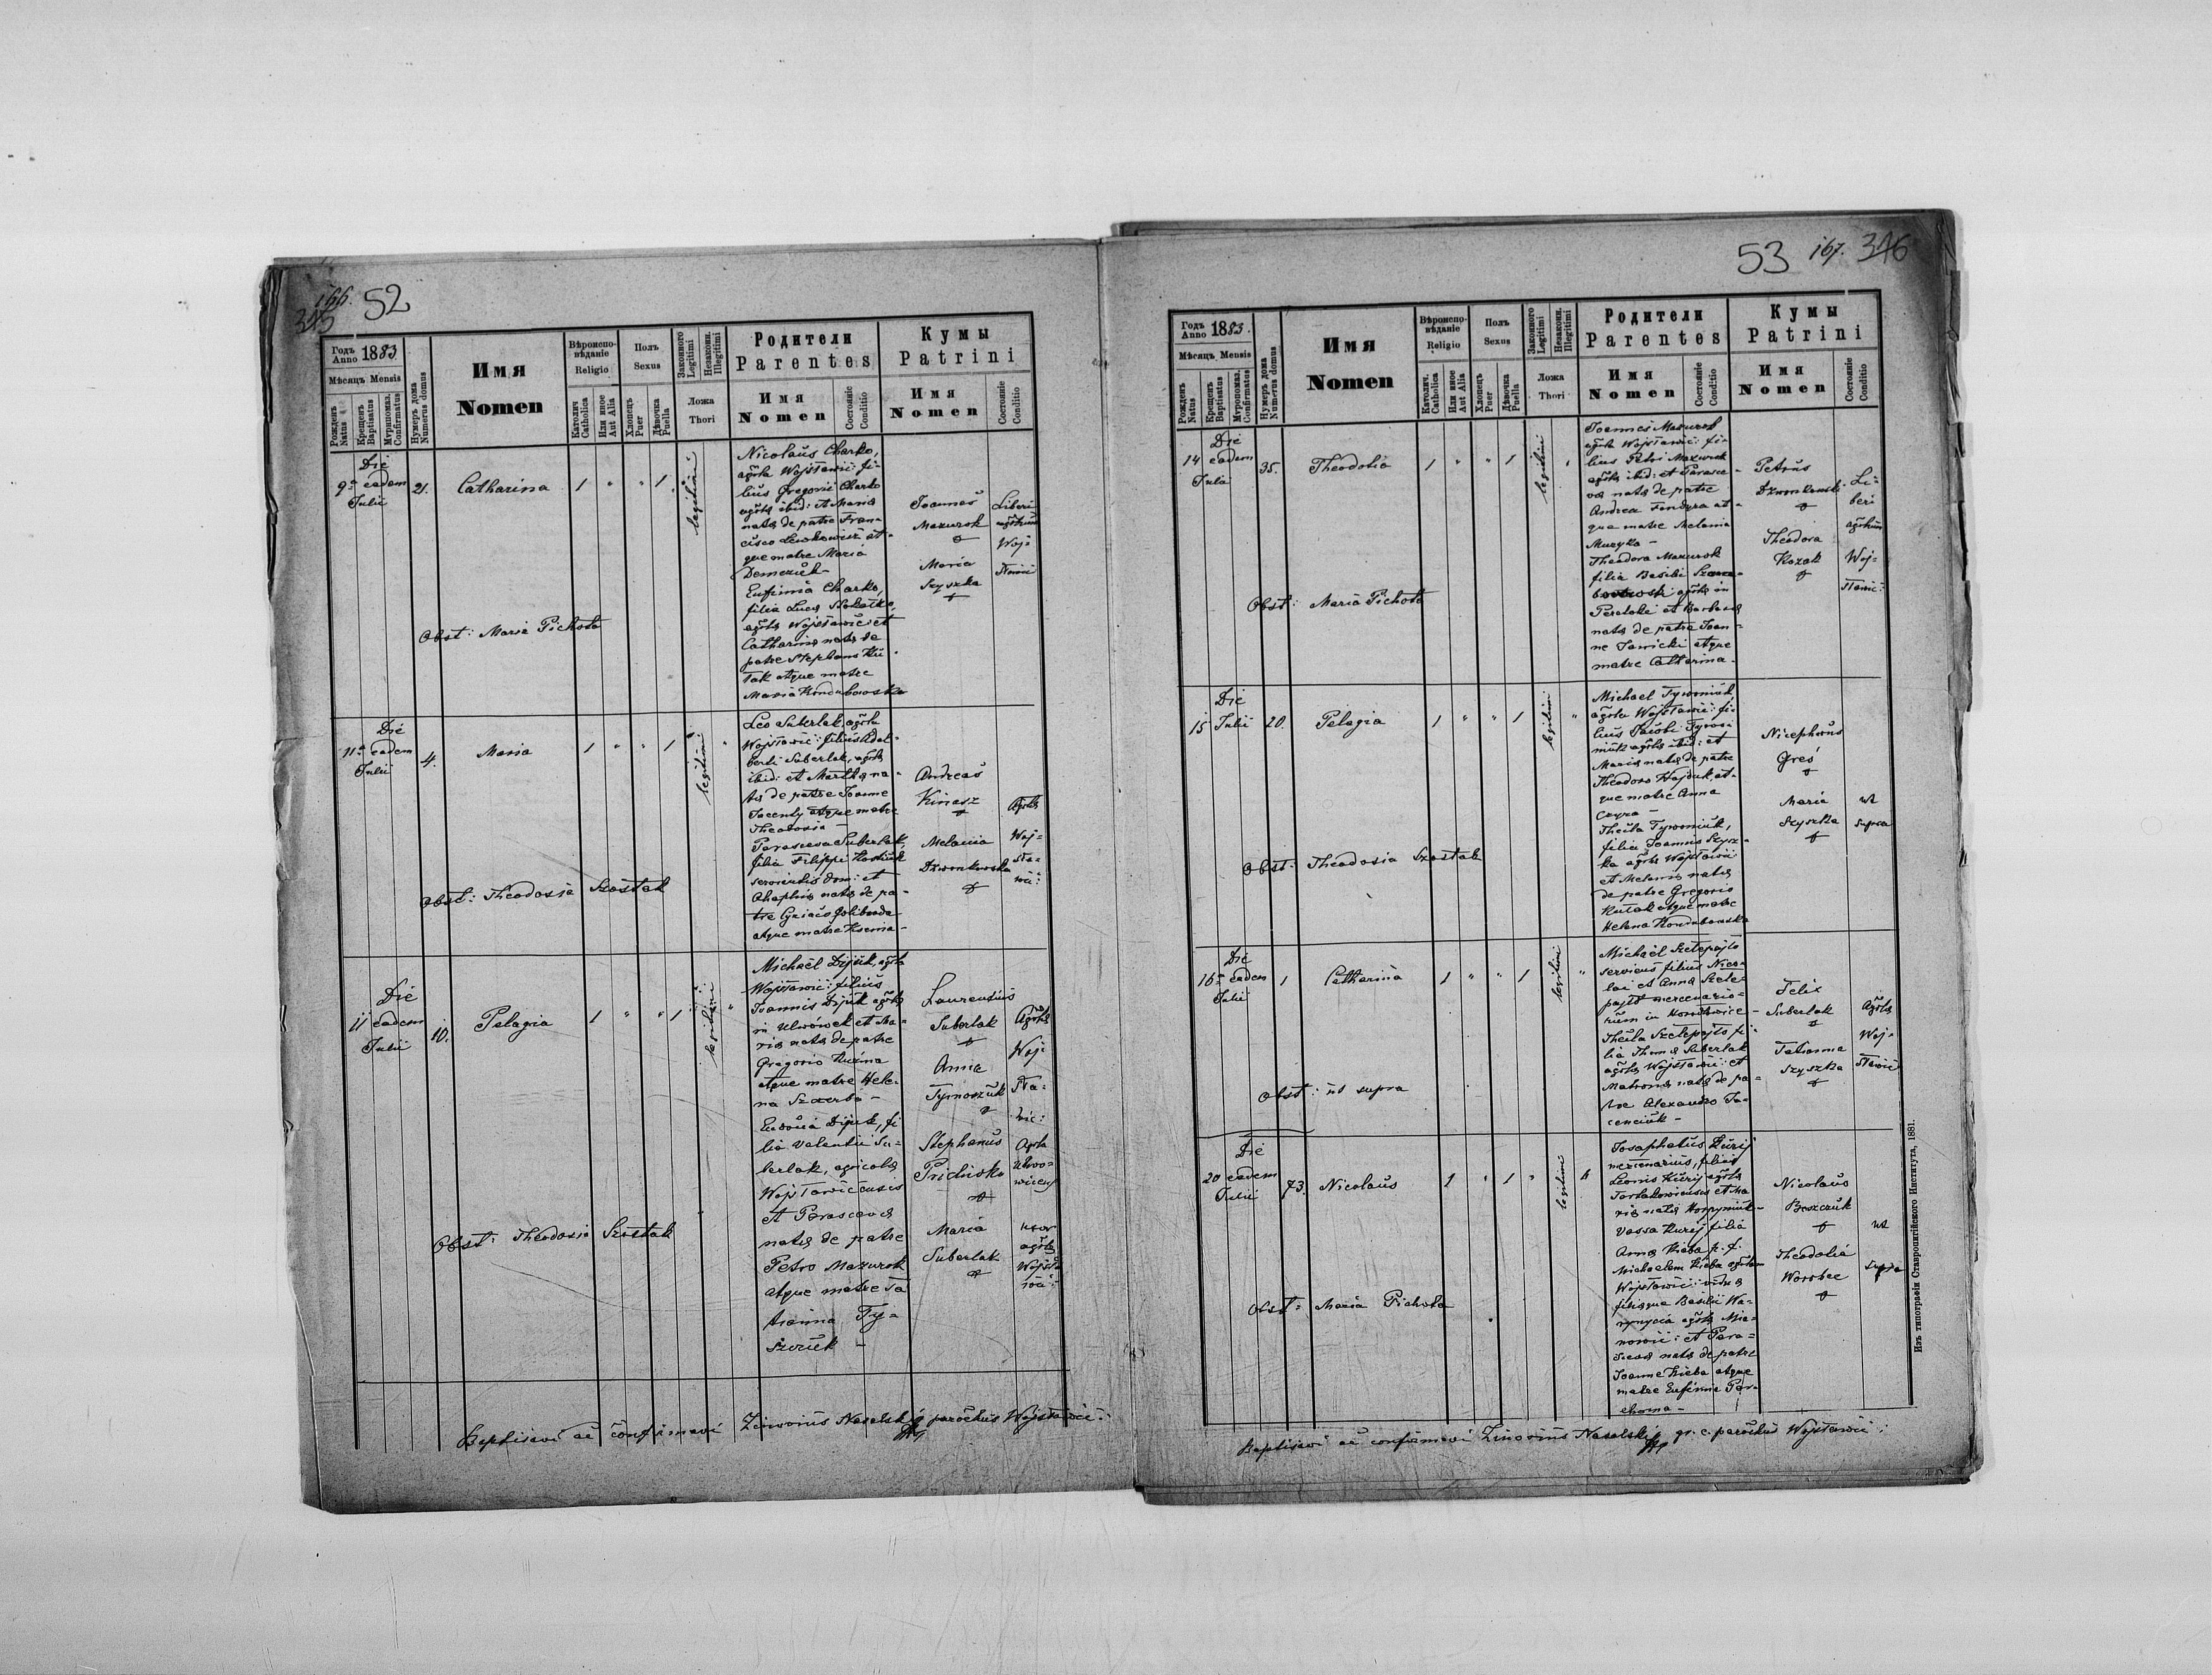 166. 52
315
Годъ Anno 1883.
Мѣсяцъ Mensis
Рожденъ Natus
Крещенъ Baptisatus
Мѵропомаз. Confirmatus
Нумеръ дома Numerus domus
Имя
Nomen
Вѣроиспо-
вѣданіе
Religio
Католич Catholica
Или иное Aut Alia
Полъ
Sexus
Хлопецъ Puer
Дѣвочка Puella
Законного Legitimi
Незаконн. Illegitimi
Ложа
Thori
Родители
Parentes
Имя
Nomen
Состояніе Conditio
Кумы
Patrini
Имя
Nomen
Состояніе Conditio
Die
9a eadem
Julii
21.
Catharina
1 " " 1
legitimi
Nicolaus Charko,
agrla Wojsławic: fi-
lius Gregorii Charko
agrlae ibid: et Maria
nata de patre Fran-
cisco Lewkowicz at-
que matre Maria
Demczuk-
Eufimia Charko,
filia Lucae
agrlae Wojsławic: et
Catharina nata de
patre Stephano Ku-
tak atque matre
Maria Kondubowska
Joannes
Mazurok
Maria
Szyszka
Liberi
agrlrum
Woj-
sławic
Obst: Maria Pichota
Die
11a eadem
Julii
4.
Maria
1 " " 1
legitimi "
Leo Suberlak, agrla
Wojsławic: filius Adal-
berti Suberlak, agrlae
ibid: et Martha na-
ta de patre Joanne
Jacenty atque matre
Theodosia
Parasceva Suberlak,
filia Filippi Kostiuk
servientis dom: et
Ahaphia nata de pa-
tre
atque matre Ksenia-
Andreas
Kinasz
Melania
Dzwonkowska
Agrlae
Woj-
sła-
wic:
Obst: Theodosia Szostak
Die
11 eadem
Julii
10.
Pelagia
1 " " 1
legitimi "
Michaël Dijuk, agrla
Wojsławic: filius
Joannis Dijuk agrlae
in Ulwówek et Ma-
ria nata de patre
Gregorio Kuzma
atque matre Hele-
na Szczerba-
Eudoxia Dijuk, fi
lia Valentii Su-
berlak, agricolae
Wojsławicensis
et Parasceva
nata de patre
Petro Mazurok
atque matre Ta
tianna Ty-
szczuk -
Laurentius
Suberlak
Anna
Tymoszuk
Stephanus
Pridisko
Maria
Suberlak
Agrlae
Woj-
sła-
wic:
Agrla
Ulwo-
wicen
uxor
agrlae
Wojsła
wic:
Obst: Theodosia Szostak
Baptisavi ac confirmavi Zinovius Nasalskij parochus Wojsławic:
53 167. 316
Годъ Anno 1883.
Мѣсяцъ Mensis
Рожденъ Natus
Крещенъ Baptisatus
Мѵропомаз. Confirmatus
Нумеръ дома Numerus domus
Имя
Nomen
Вѣроиспо-
вѣданіе
Religio
Католич. Catholica
Или иное Aut Alia
Полъ
Sexus
Хлопецъ Puer
Дѣвочка Puella
Законного Legitimi
Незаконн. Illegitimi
Ложа
Thori
Родители
Parentes
Имя
Nomen
Состояніе Conditio
Кумы
Patrini
Имя
Nomen
Состояніе Conditio
Die
14 eadem
Julii
35.
Theodotia
1 " " 1
legitimi
Joannes Mazurok
agrla Wojsławic: fi-
lius Petri Mazurok
agrlae ibid: et Parasce-
va nata de patre
Andrea Fendyra at-
que matre Melania
Muzyka-
Theodora Mazurok
filia Basilii
agrlae in
Peretoki et Barbara
nata de patre Joan-
ne Janicki atque
matre Catherina-
Petrus
Dzwonkowski
Theodora
Kozak
Li-
beri
agrlrum
Woj-
sławic:
Obst: Maria Pichota
Die
15 Julii
20.
Pelagia
1 " " 1
legitimi "
Michael Tywoniuk,
agrla Wojsławic: fi-
lius Jacobi Tywoni
niuk agrlae ibid: et
Maria nata de patre
Theodoro Hajduk, at-
que matre Anna
Czyra
Thecla Tywoniuk,
filia Joannis Szysz-
ka agrlae Wojsławic
et Melania nata
de patre Gregorio
Kutak atque matre
Helena Kondubowska
Nicephorus
Greś
Maria
Szyszka
ut
supra
Obst: Theodosia Szostak
Die
16a eadem
Julii
1
Catharina
1 " " 1
legitimi "
Michaël Szelepajło
serviens filius Nico-
lai et Anna Szele-
pajło mercenario-
rum in
Thecla Szelepajło fi-
lia Thoma Suberlak
agrlae Wojsławic: et
Matrona nata de pa-
tre Alexandro Ja-
cenciuk-
Felix
Suberlak
Tatianna
Szyszka
Agrlae
Woj-
sławic
Obst: ut supra
Die
20 eadem
Julii
73.
Nicolaus
1 " 1 "
legitimi "
Josaphatus Kurij
mercenarius, filius
Leonis Kurij agrlae
Tartakowiensis et Ma
ria nata
Vassa Kurij filia
Anna Kieba p. f.
Michaelem Kieba agrlam
Wojsławic: vidua
filiaque Basilii
agrlae Mia-
nowic: et Para-
sceva nata de patre
Joanne Kieba atque
matre Eufimia Par-
choma-
Nicolaus
Boszczuk
Theodotia
Worobec
ut
supra
Obst: Maria Pichota
Baptisavi ac confirmavi Zinovius Nasalskij gr. c. parochus Wojsławic:
Изъ типографіи Ставропигійского Института, 1881.